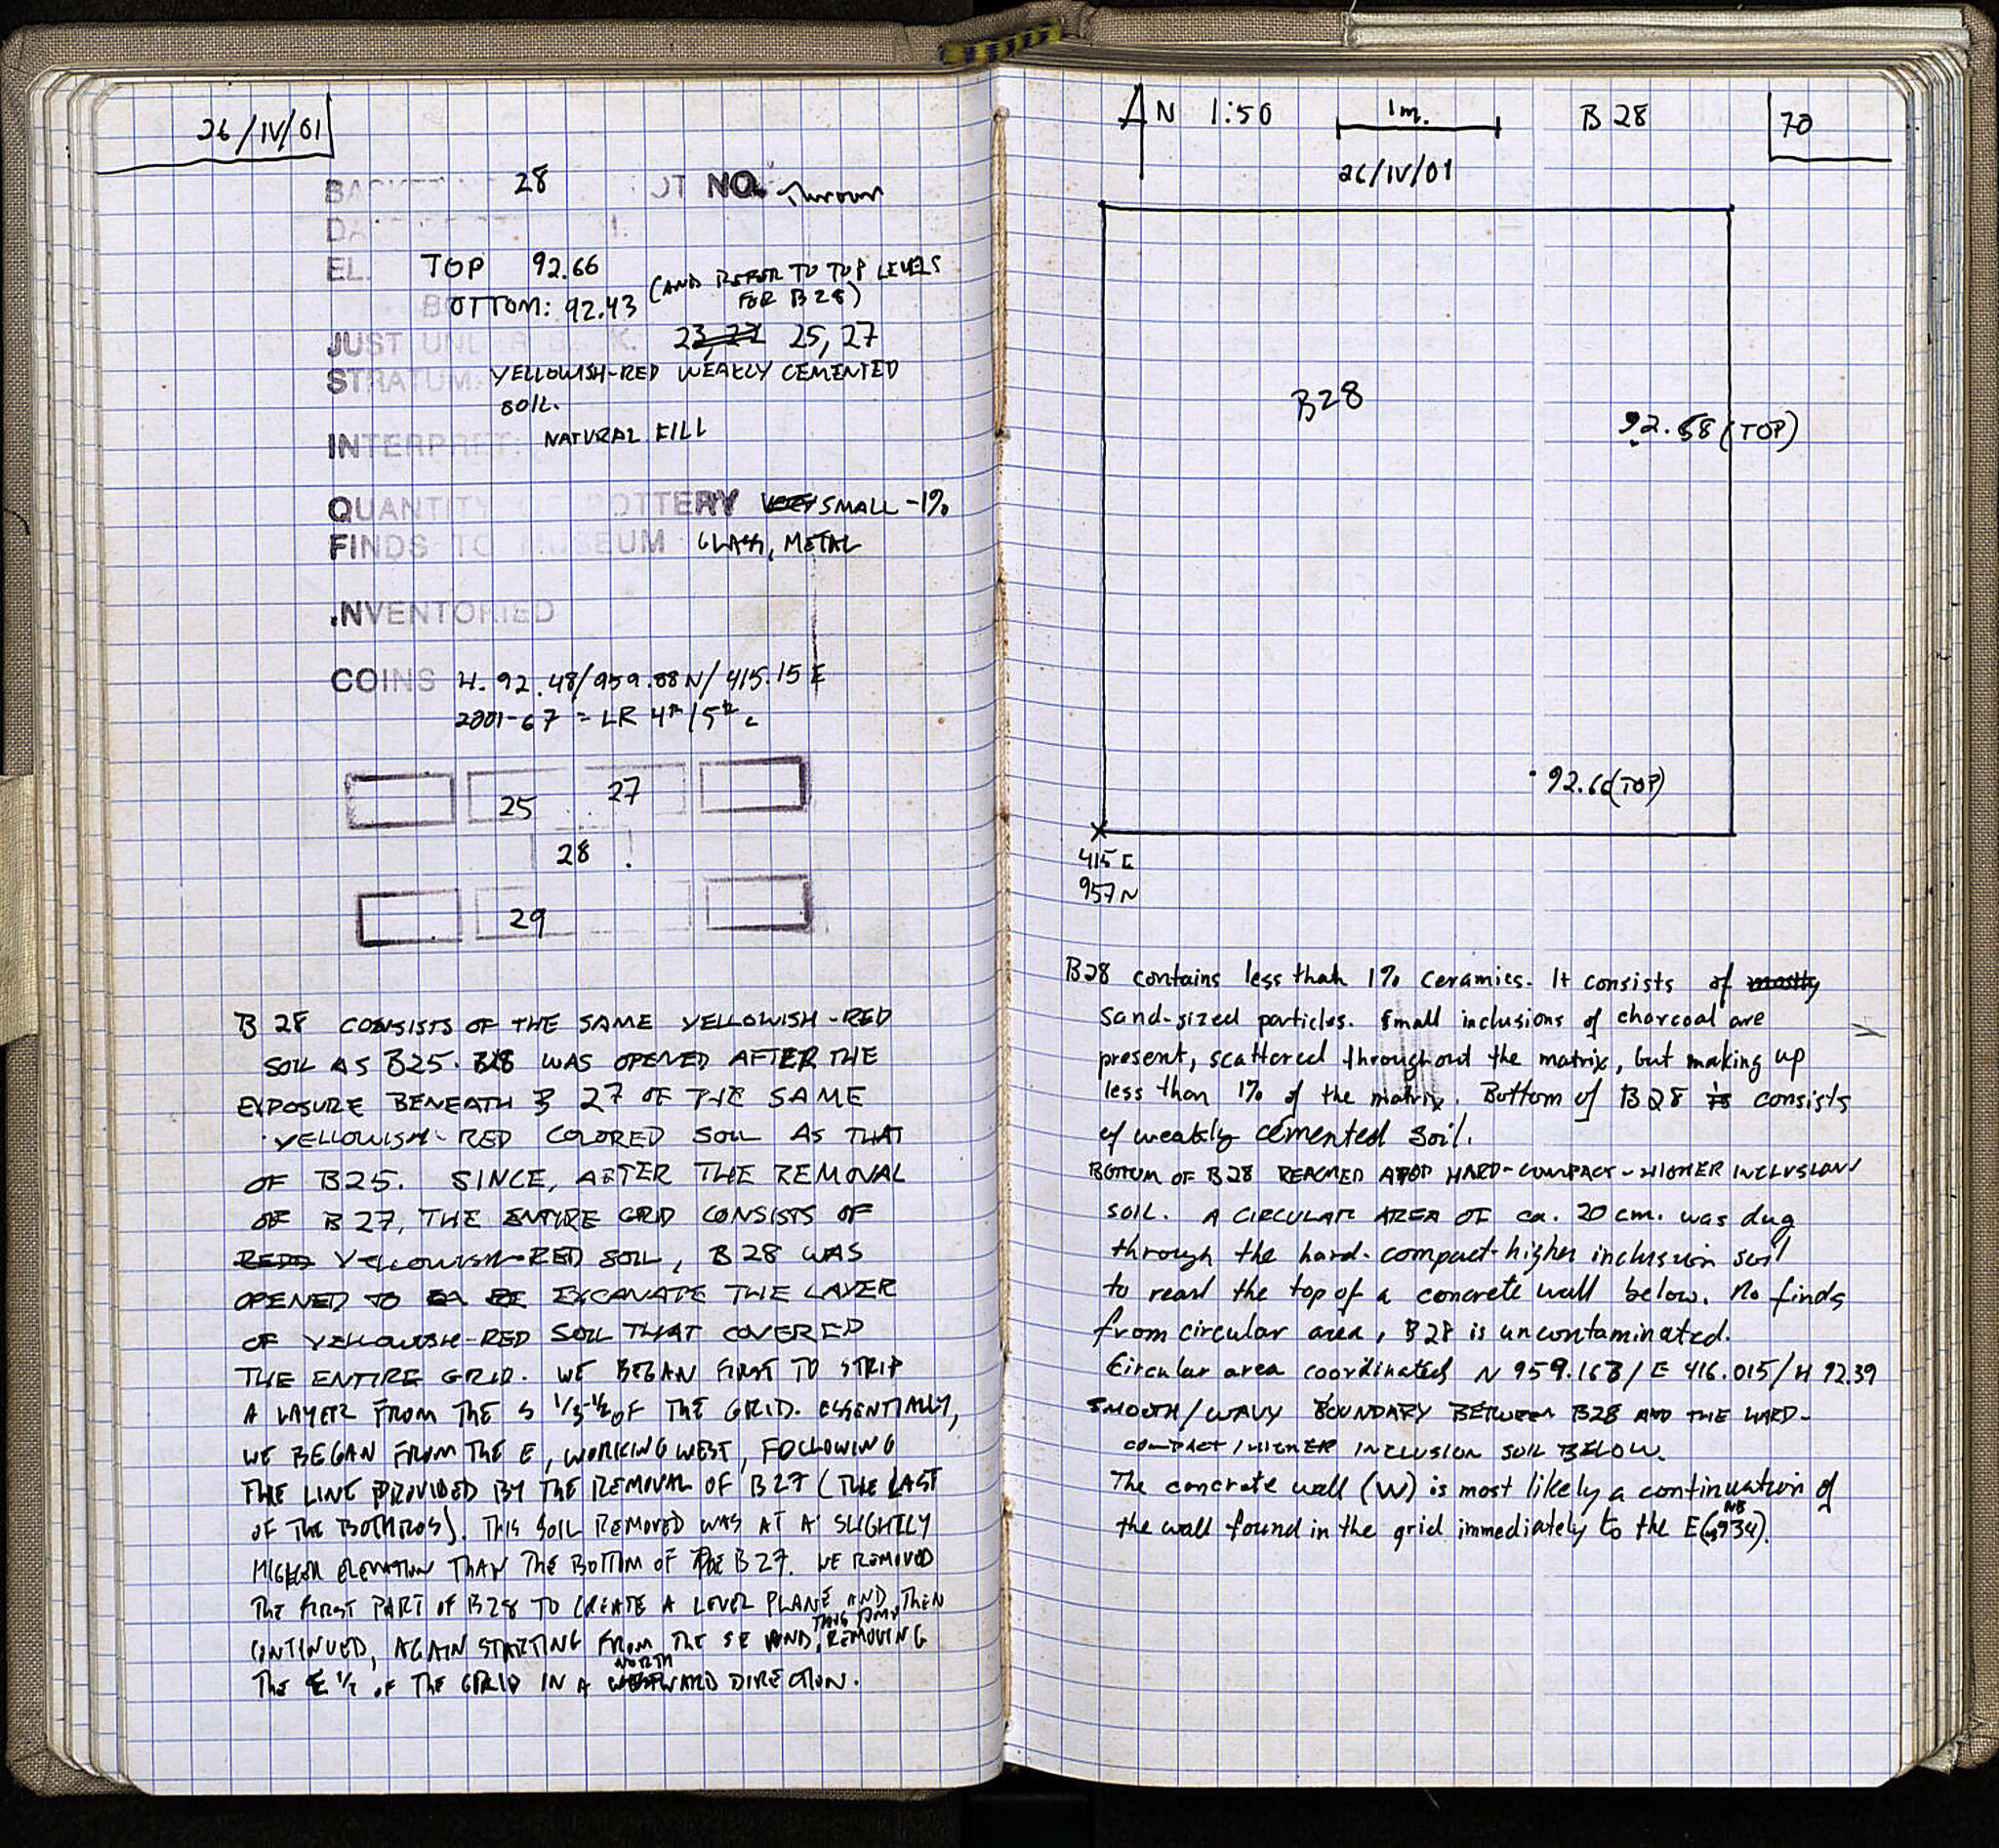 26/IV/01
BASKET 28 LOT NO. Thrown
DA
EL. TOP 92.66 (AND REFER TO TOP LEVELS
FOR B28)
BOTTOM: 92.43
JUST UNDER BASK. 25, 27
STRATUM: YELLOWISH-RED WEAKLY CEMENTED
SOIL.
INTERPRET: NATURAL FILL
QUANTITY OF POTTERY SMALL -1%
FINDS TO MUSEUM GLASS, METAL
INVENTORIED
COINS H. 92.48/959.88N/415.15E
2001-67 = LR 4th/5th c
25 27
28
29
B 28 CONSISTS OF THE SAME YELLOWISH-RED
SOIL AS B25. B28 WAS OPENED AFTER THE
EXPOSURE BENEATH B 27 OF THE SAME
YELLOWISH-RED COLORED SOIL AS THAT
OF B25. SINCE, AFTER THE REMOVAL
OF B 27, THE ENTIRE GRID CONSISTS OF
YELLOWISH-RED SOIL, B 28 WAS
OPENED TO EXCAVATE THE LAYER
OF YELLOWISH-RED SOIL THAT COVERED
THE ENTIRE GRID. WE BEGAN FIRST TO STRIP
A LAYER FROM THE S 1/3-1/2 OF THE GRID. ESSENTIALLY,
WE BEGAN FROM THE E, WORKING WEST, FOLLOWING
THE LINE PROVIDED BY THE REMOVAL OF B27 (THE LAST
OF THE BOTHROS). THIS SOIL REMOVED WAS AT A SLIGHTLY
HIGHER ELEVATION THAN THE BOTTOM OF THE B27. WE REMOVED
THE FIRST PART OF B28 TO CREATE A LEVEL PLANE AND THEN
CONTINUED, AGAIN STARTING FROM THE SE AND, THIS TIME REMOVING
THE E 1/2 OF THE GRID IN A NORTHWARD DIRECTION.
N 1:50 1m. B 28 70
26/IV/01
B28
92.68 (TOP)
92.66 (TOP)
415 E
957 N
B28 contains less than 1% ceramics. It consists of mostly
sand-sized particles. Small inclusions of charcoal are
present, scattered throughout the matrix, but making up
less than 1% of the matrix. Bottom of B28 is consists
of weakly cemented soil.
BOTTOM OF B28 REACHED ATOP HARD-COMPACT-HIGHER INCLUSION
SOIL. A CIRCULAR AREA OF ca. 20 cm. was dug
through the hard-compact-higher inclusion soil
to reach the top of a concrete wall below. No finds
from circular area, B28 is uncontaminated.
Circular area coordinated N 959.163/ E 416.015/H 92.39
SMOOTH/WAVY BOUNDARY BETWEEN B28 AND THE HARD-
COMPACT/HIGHER INCLUSION SOIL BELOW.
The concrete wall (W) is most likely a continuation of
the wall found in the grid immediately to the E (NB 934).